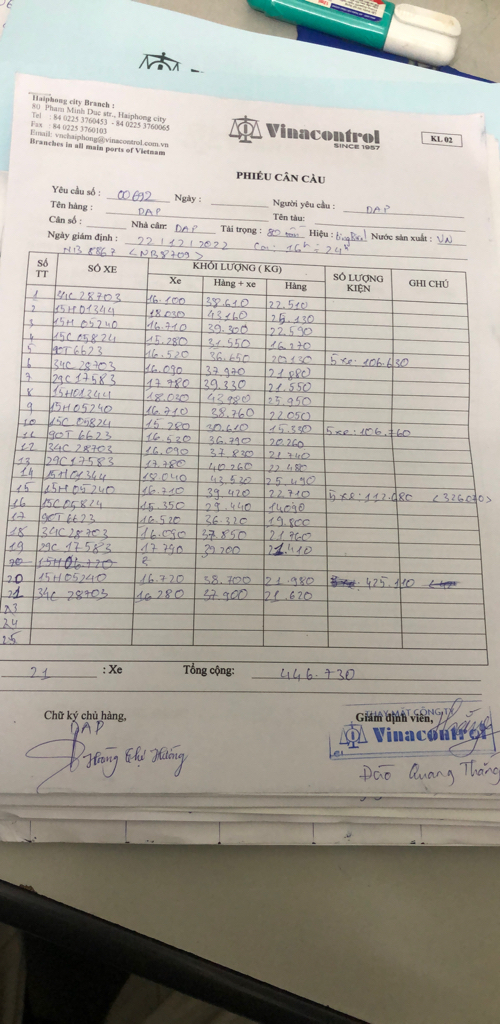 Haiphong city Branch :
80 Pham Minh Duc str., Haiphong city
Tel : 84 0225 3760453 - 84 0225 3760065
Fax : 84 0225 3760103
Email: vnchaiphong@vinacontrol.com.vn
Branches in all main ports of Vietnam
Vinacontrol
SINCE 1957
KL 02
PHIẾU CÂN CẦU
Yêu cầu số : 00692 Ngày : Người yêu cầu : DAP
Tên hàng : DAP Tên tàu:
Cân số : Nhà cân: DAP Tải trọng : 80 Hiệu : Nước sản xuất : VN
Ngày giám định : 22/12/2022 Ca: 16h ÷ 24h
NB 8867 <NB8709>
Số TT SỐ XE KHỐI LƯỢNG ( KG) SỐ LƯỢNG KIỆN GHI CHÚ
Xe Hàng + xe Hàng
1 34C 28703 16.100 38.610 22.510
2 15H01344 18.030 43.160 25.130
3 15H 05240 16.710 39.300 22.590
4 15C 05824 15.280 31.550 16.270
5 90T 6623 16.520 36.650 20.130 5 xe: 106.630
6 34C 28703 16.090 37.970 21.880
7 29C 17583 17.780 39.330 21.550
8 15H01344 18.030 43.980 25.950
9 15H05240 16.710 38.760 22.050
10 15C 05824 15.280 30.610 15.330 5 xe: 106.760
11 90T 6623 16.520 36.790 20.260
12 34C 28703 16.090 37.830 21.740
13 29C17583 17.780 40.260 22.480
14 15H01344 18.040 43.530 25.490
15 15H05240 16.710 39.420 22.710 5 xe: 112.680 <326070>
16 15C 05824 15.350 29.440 14.090
17 90T 6623 16.520 36.320 19.800
18 34C28703 16.090 37.850 21.760
19 29C 17583 17.790 39.200 21.410
20
20 15H05240 16.720 38.700 21.980 425.110
21 34C 28703 16.280 37.900 21.620
23
24
25
21 : Xe Tổng cộng: 446.730
Chữ ký chủ hàng, Giám định viên,
DAP THAY MẶT CÔNG TY
Vinacontrol
Hoàng Thị Hường
Đào Quang Thắng